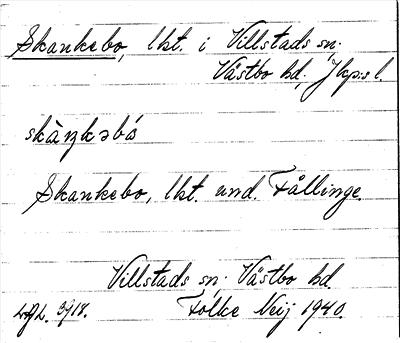 Skankebo, lkt. i Villstads sn.
Västbo hd. Jkps l.
skàŋkəbó
Skankebo, lkt. und. Fållinge.
Villstads sn. Västbo hd
3918. Folke Neij 1940.